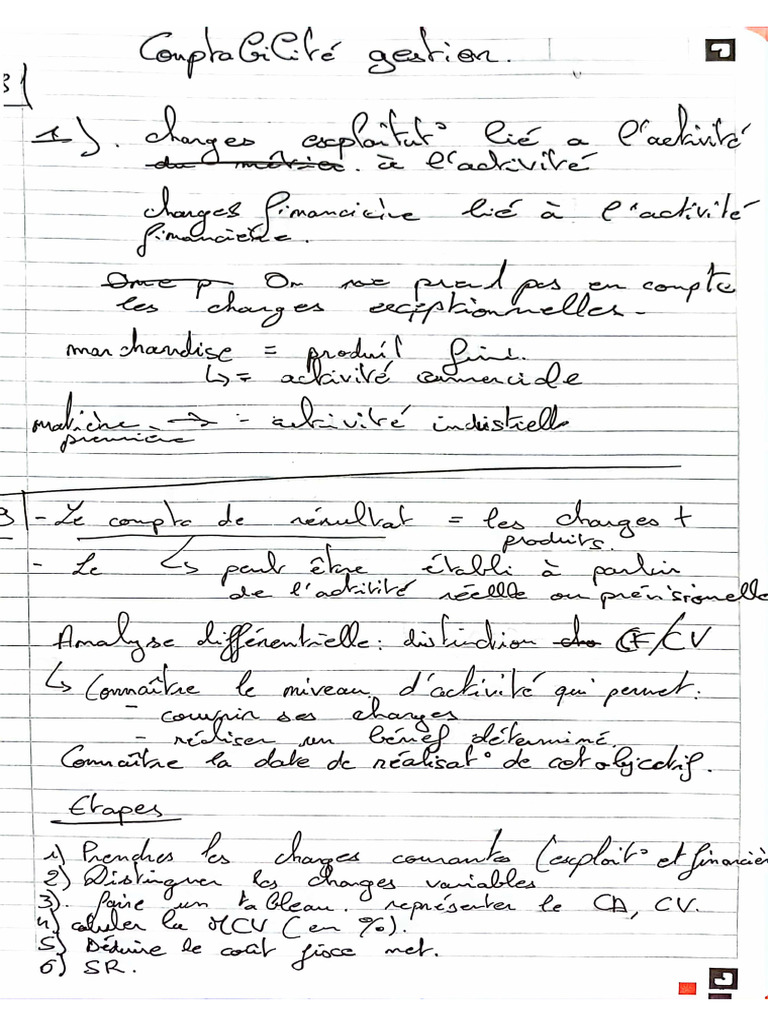 Comptabilité gestion.
3
1). charges exploitat° lié a l'activité
du métier. à l'activité
charges financière lié à l'activité
financière.
On ne prend pas en compte
les charges exceptionnelles.
marchandise = produit fini.
↳ = activité commerciale
matière → = activité industriell
première
3 - Le compte de résultat = les charges +
produits.
- Le ↳ peut être établi à partir
de l'activité réelle ou prévisionelle
Analyse différentielle : distinction CF/CV
↳ Connaître le niveau d'activité qui permet :
- couvrir ses charges
- réaliser un bénef déterminé.
Connaître la date de réalisat° de cet objectif.
Etapes
1) Prendres les charges courantes (exploit° et financièr
2) Distinguer les charges variables
3). Faire un tableau. représenter le CA, CV.
4) calculer la MCV (en %).
5) Déduire le coût fixe net.
6) SR.